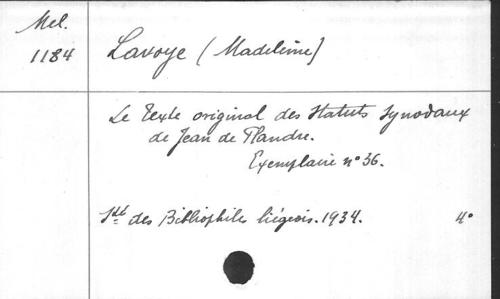 Mel.
1184
Lavoye (Madeleine)
Le Texte original des Statuts Synodaux
de Jean de Flandre.
Exemplaire n° 36.
Sté des Bibliophiles liégeois. 1934. 4°